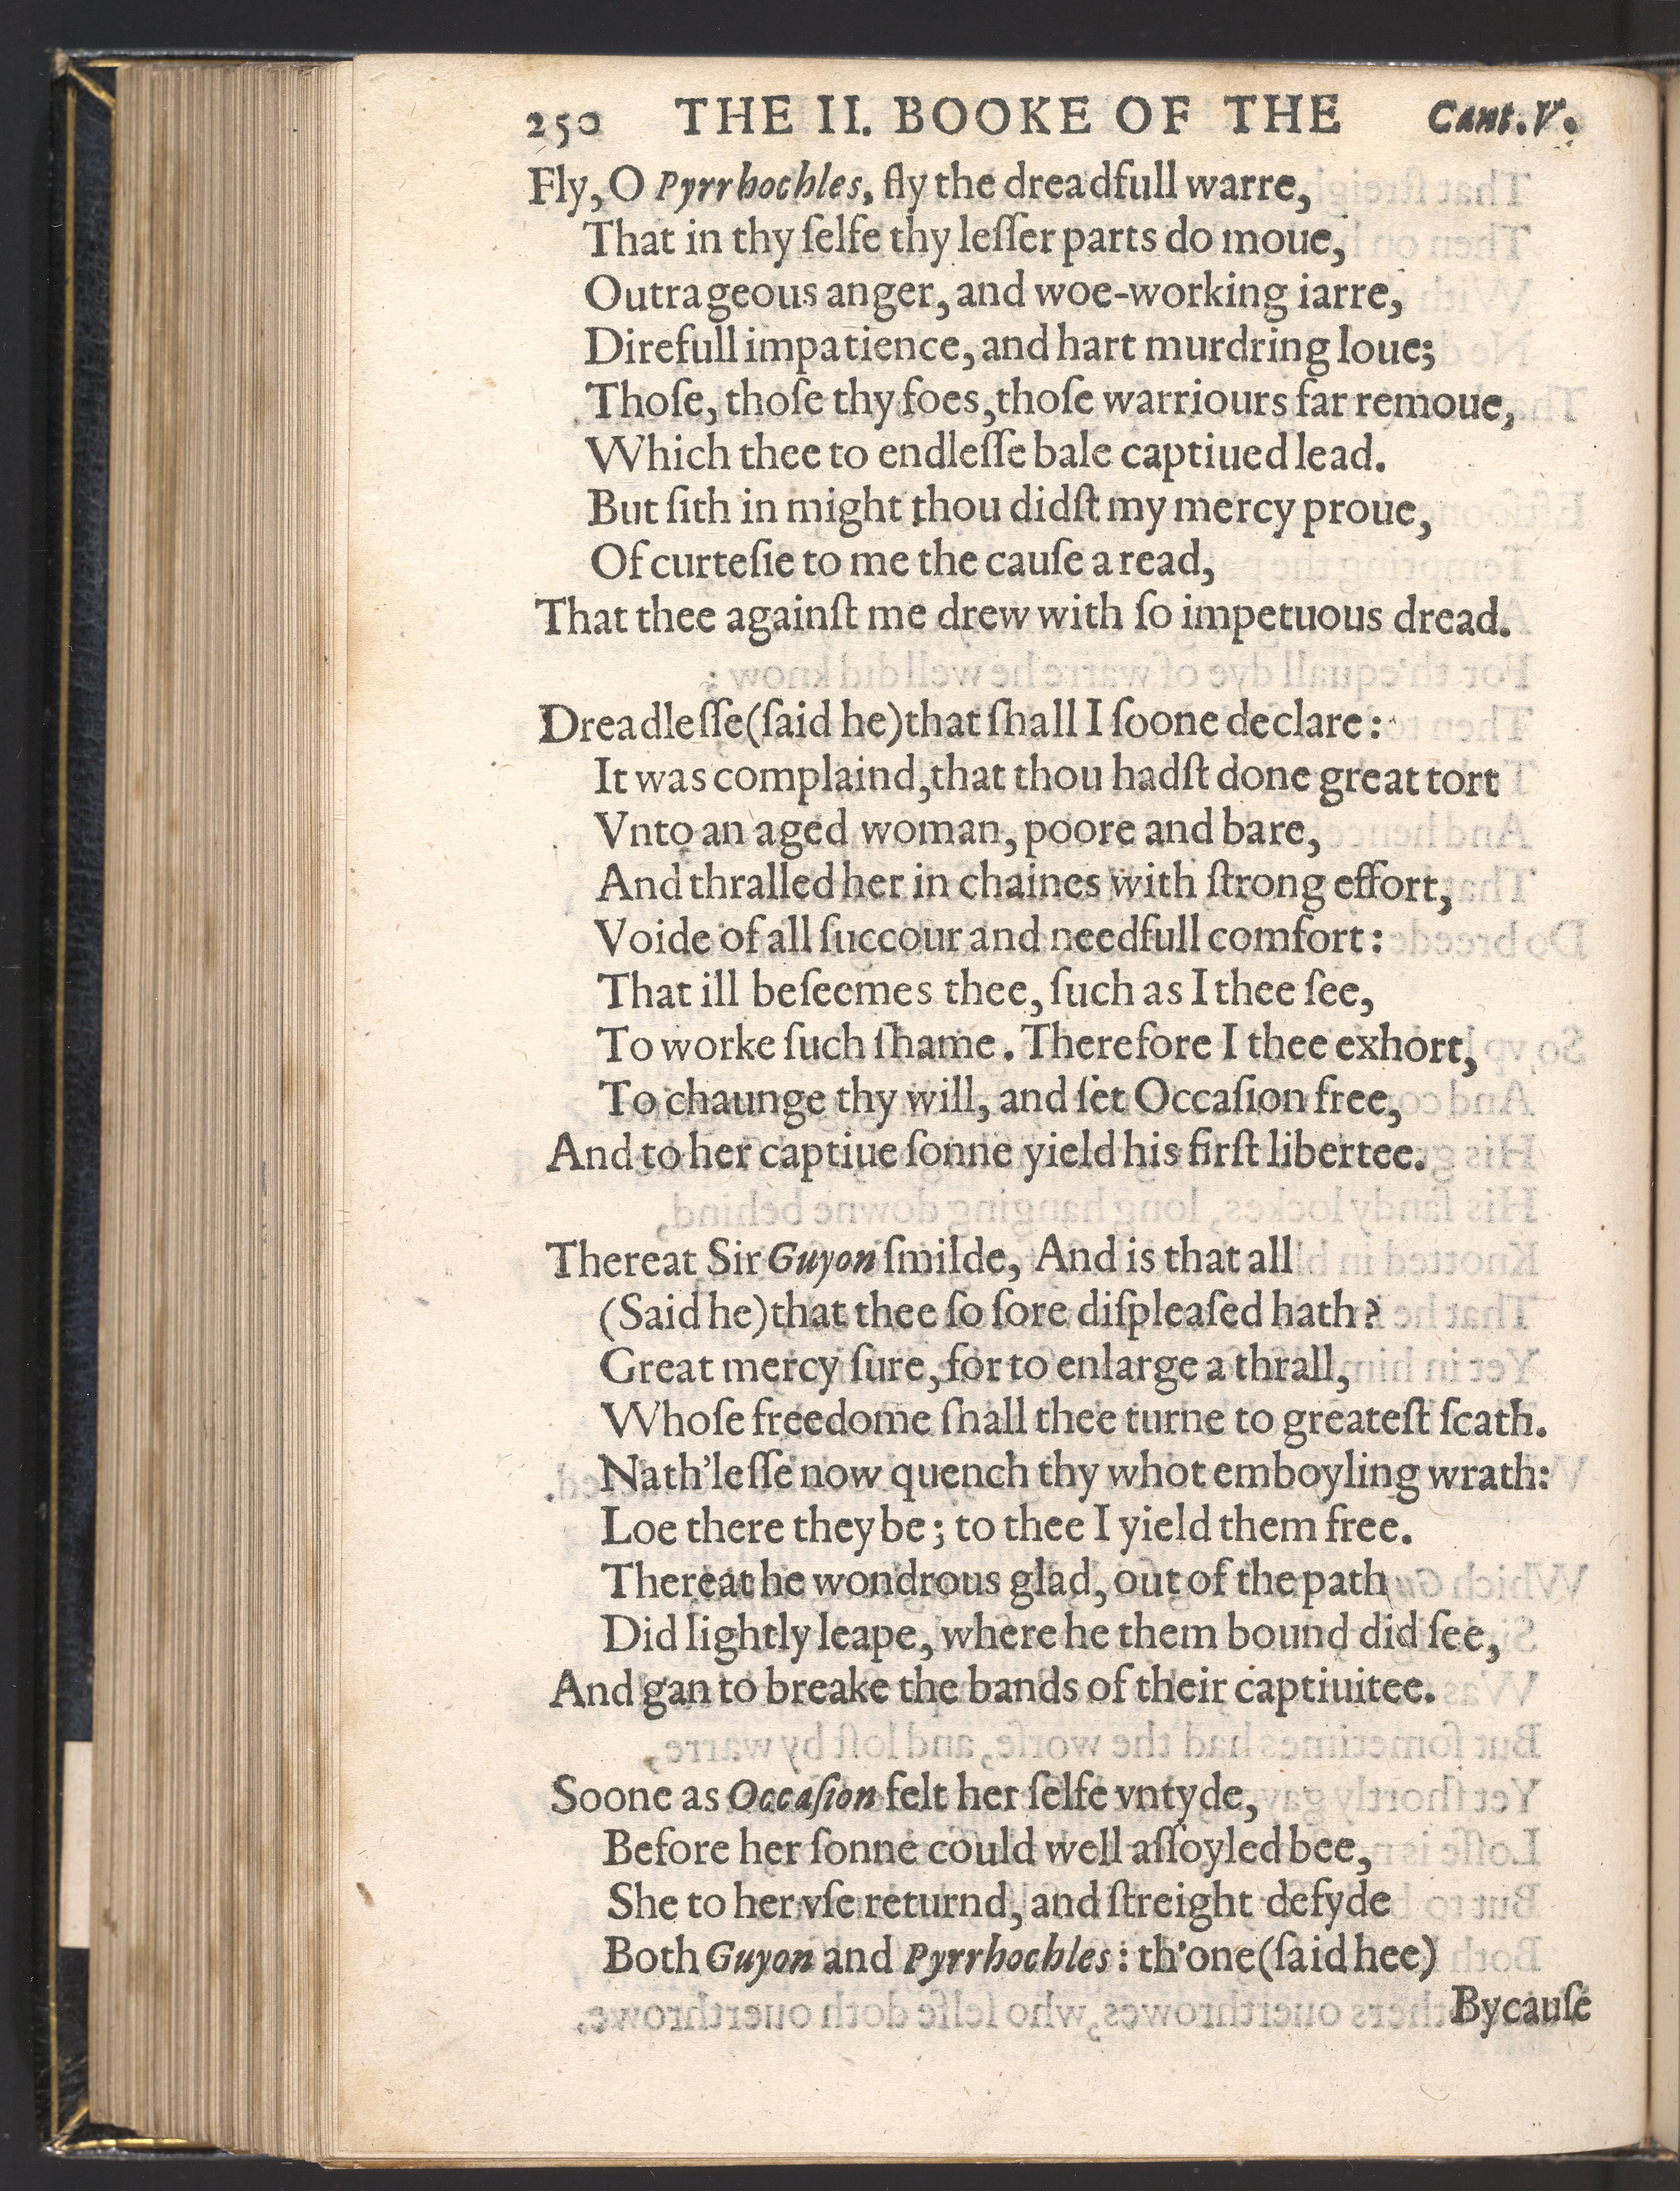 250 THE II. BOOKE OF THE Cant. V.
Fly, O Pyrrhochles, fly the dreadfull warre,
That in thy ſelfe thy leſſer parts do moue,
Outrageous anger, and woe-working iarre,
Direfull impatience, and hart murdring loue;
Thoſe, thoſe thy foes, thoſe warriours far remoue,
Which thee to endleſſe bale captiued lead.
But ſith in might thou didſt my mercy proue,
Of curteſie to me the cauſe a read,
That thee againſt me drew with ſo impetuous dread.
Dreadleſſe (ſaid he) that ſhall I ſoone declare:
It was complaind, that thou hadſt done great tort
Vnto an aged woman, poore and bare,
And thralled her in chaines with ſtrong effort,
Voide of all ſuccour and needfull comfort:
That ill beſeemes thee, ſuch as I thee ſee,
To worke ſuch ſhame. Therefore I thee exhort,
To chaunge thy will, and ſet Occaſion free,
And to her captiue ſonne yield his firſt libertee.
Thereat Sir Guyon ſmilde, And is that all
(Said he) that thee ſo ſore diſpleaſed hath?
Great mercy ſure, for to enlarge a thrall,
Whoſe freedome ſhall thee turne to greateſt ſcath.
Nath'leſſe now quench thy whot emboyling wrath:
Loe there they be; to thee I yield them free.
Thereat he wondrous glad, out of the path
Did lightly leape, where he them bound did ſee,
And gan to breake the bands of their captiuitee.
Soone as Occaſion felt her ſelfe vntyde,
Before her ſonne could well aſſoyled bee,
She to her vſe returnd, and ſtreight defyde
Both Guyon and Pyrrhochles: th'one (ſaid hee)
Bycauſe